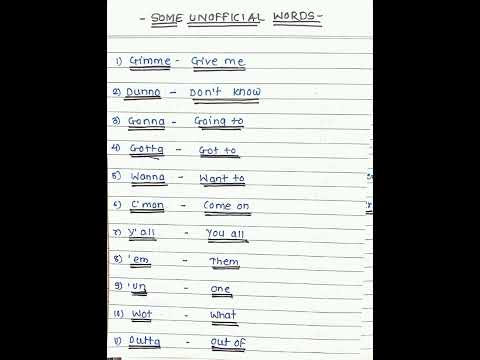 - SOME UNOFFICIAL WORDS -
1) Gimme - Give me
2) Dunno - Don't know
3) Gonna - Going to
4) Gotta - Got to
5) Wanna - Want to
6) C'mon - Come on
7) Y'all - You all
8) 'em - Them
9) 'un - one
10) Wot - What
11) Outta - Out of